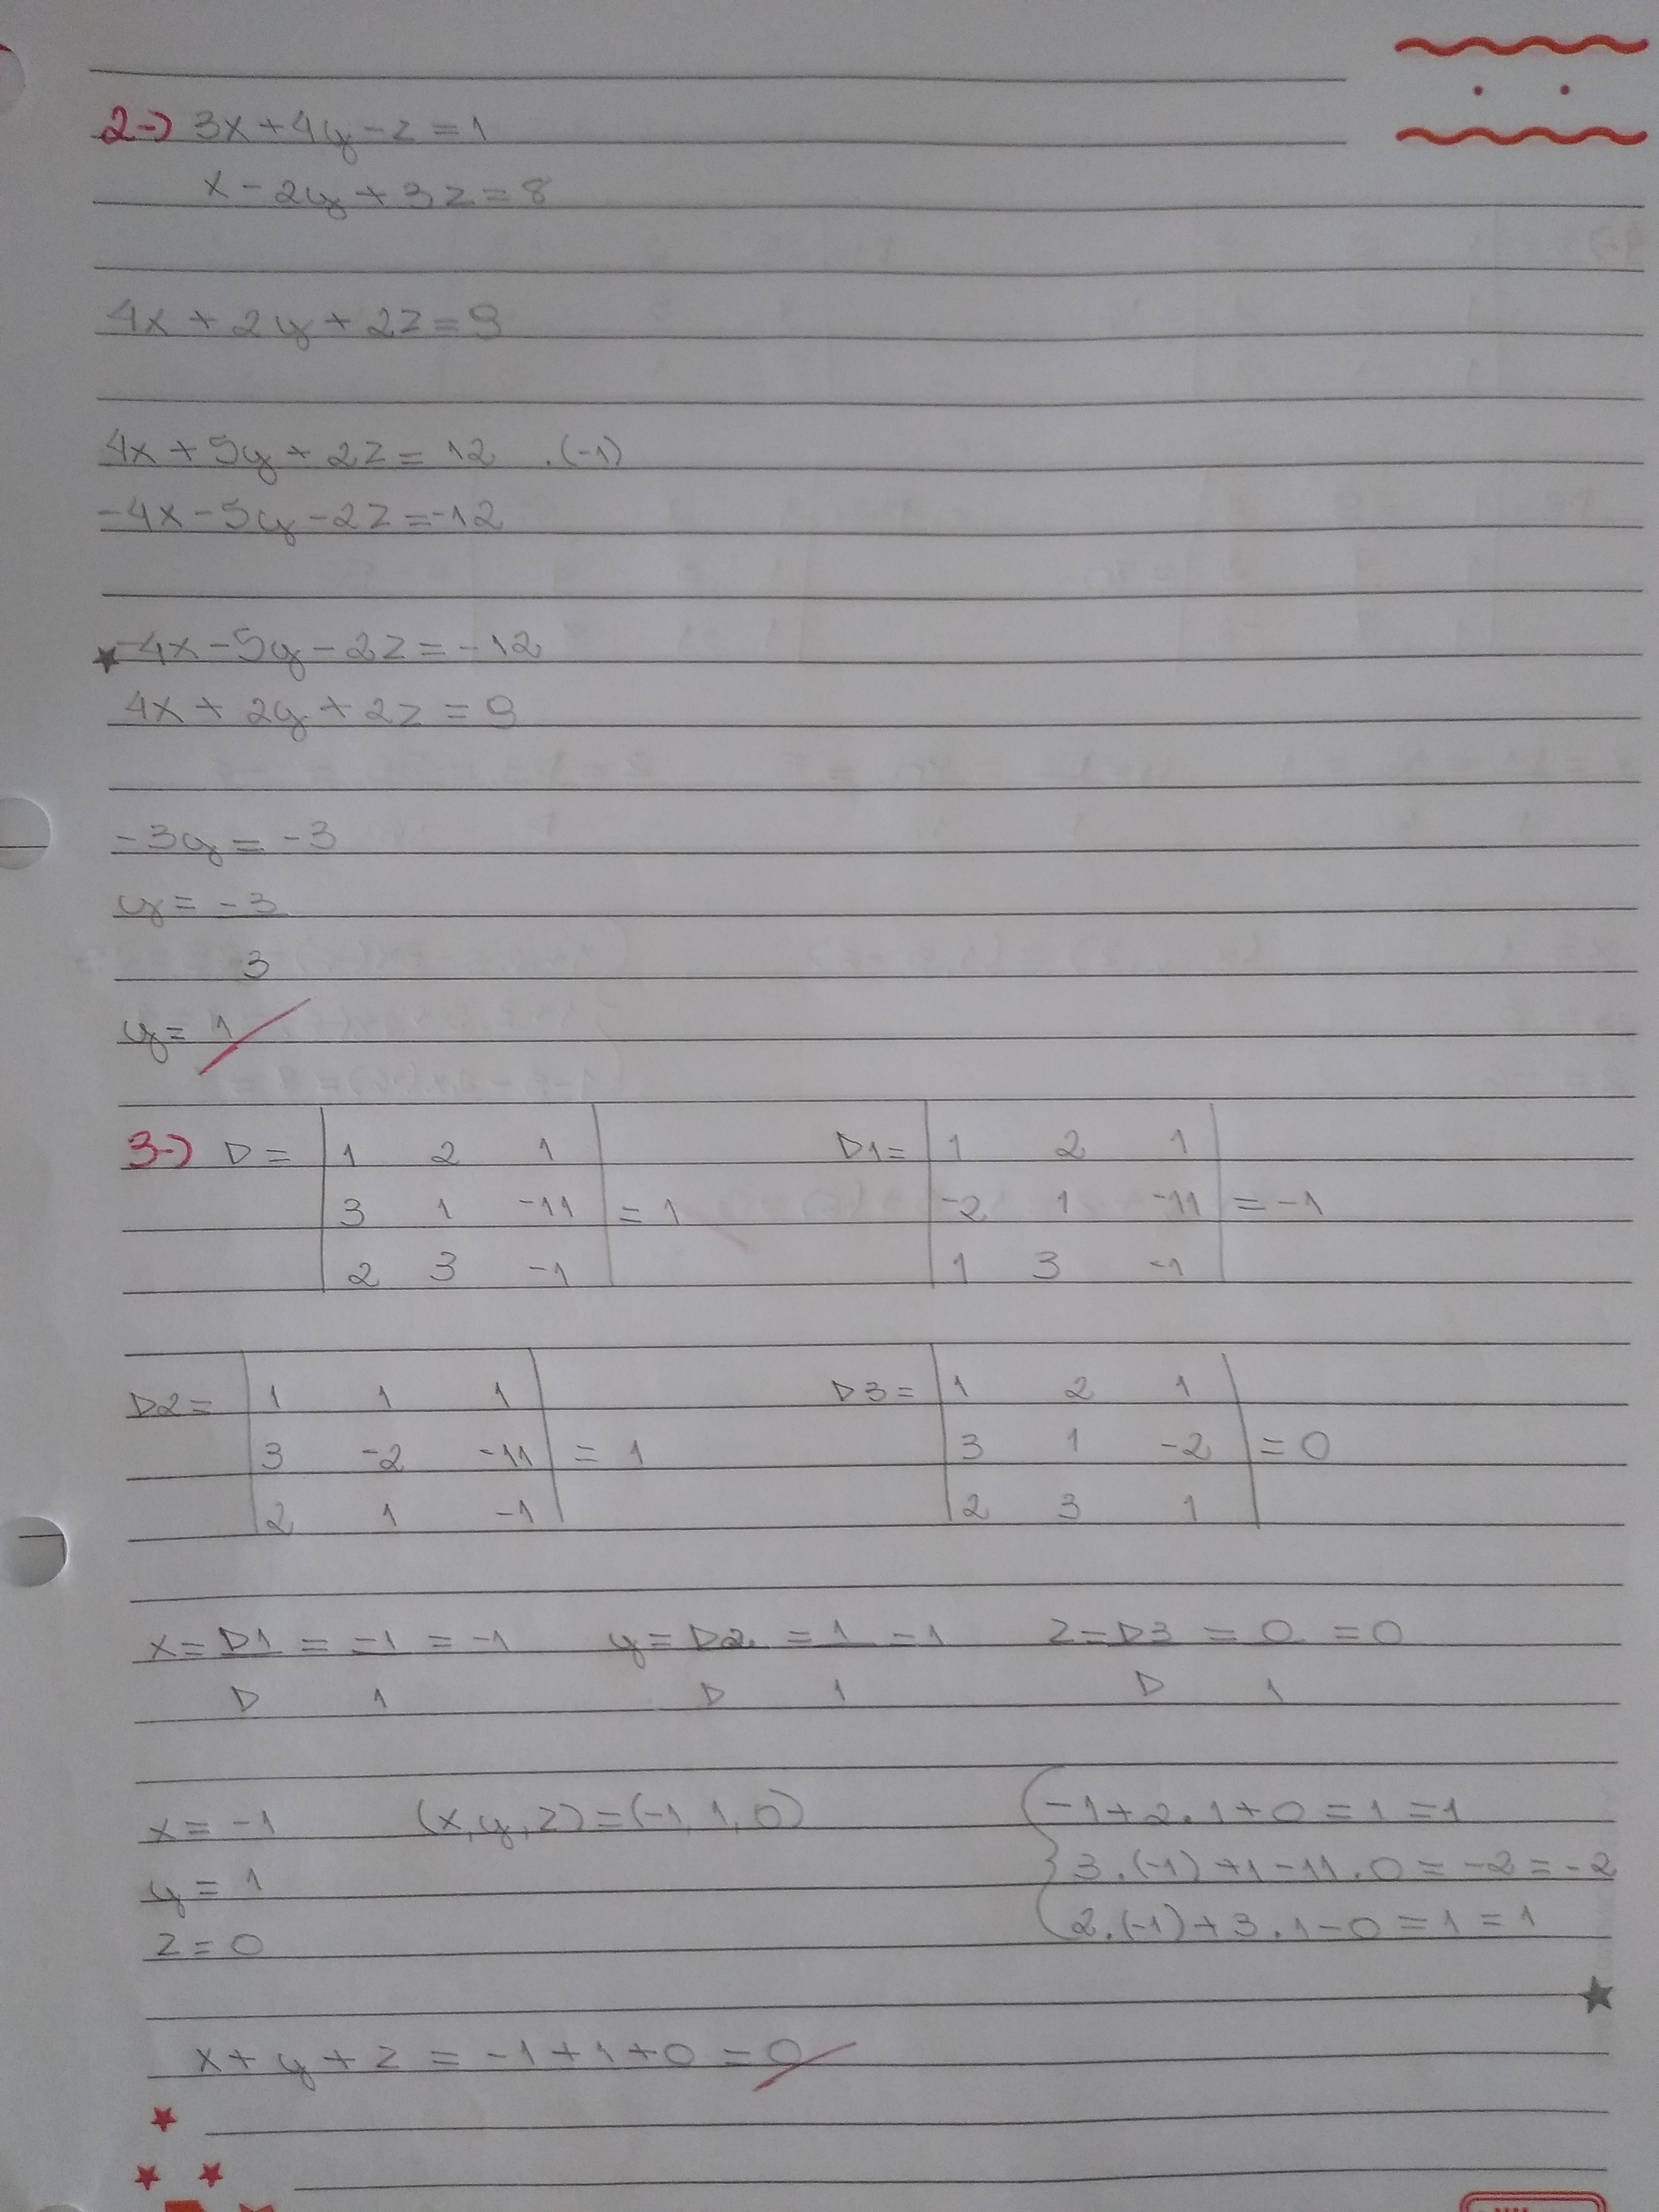 2-) 3x+4y-z=1
x-2y+3z=8
4x+2y+2z=9
4x+5y+2z=12 .(-1)
-4x-5y-2z=-12
-4x-5y-2z=-12
4x+2y+2z=9
-3y=-3
y=-3
3
y=1
3-) D= 1 2 1 D1= 1 2 1
3 1 -11 =1 -2 1 -11 =-1
2 3 -1 1 3 -1
D2= 1 1 1 D3= 1 2 1
3 -2 -11 = 1 3 1 -2 =0
2 1 -1 2 3 1
x=D1 = -1 = -1 y=D2 = 1 =1 z=D3 = 0 =0
D 1 D 1 D 1
x=-1 (x,y,z)=(-1,1,0) -1+2.1+0=1=1
y=1 3.(-1)+1-11.0=-2=-2
z=0 2.(-1)+3.1-0=1=1
x+y+z=-1+1+0=0